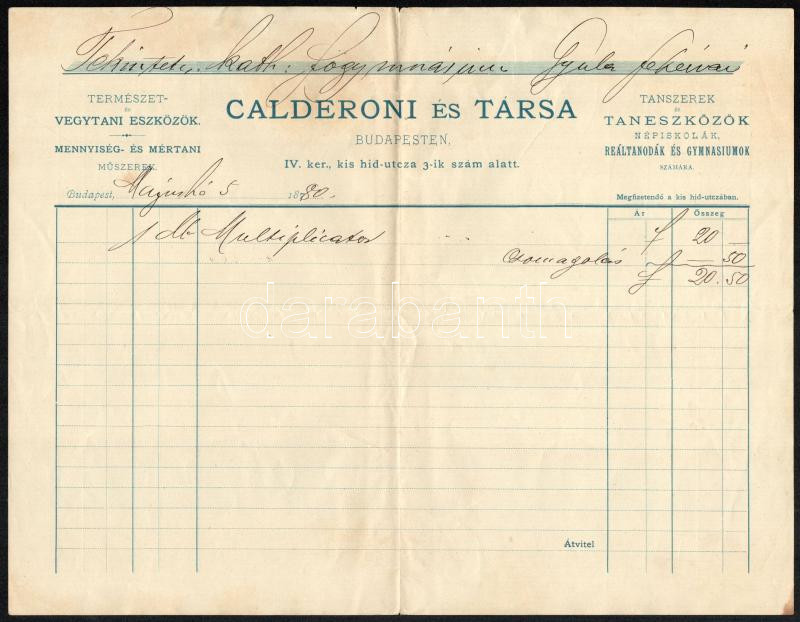 Tekintetes kath: főgymnásium Gyula fehérvár
TERMÉSZET-
ÉS
VEGYTANI ESZKÖZÖK.
MENNYISÉG- ÉS MÉRTANI
MŰSZEREK.
CALDERONI ÉS TÁRSA
BUDAPESTEN,
IV. ker., kis hid-utcza 3-ik szám alatt.
TANSZEREK
ÉS
TANESZKÖZÖK
NÉPISKOLÁK,
REÁLTANODÁK ÉS GYMNASIUMOK
SZÁMÁRA.
Budapest, Májushó 5 1880.
Megfizetendő a kis hid-utczában.
Ár Összeg
1 db Multiplicator f 20 —
Csomagolás f — 50
f 20.50
darabanth
Átvitel